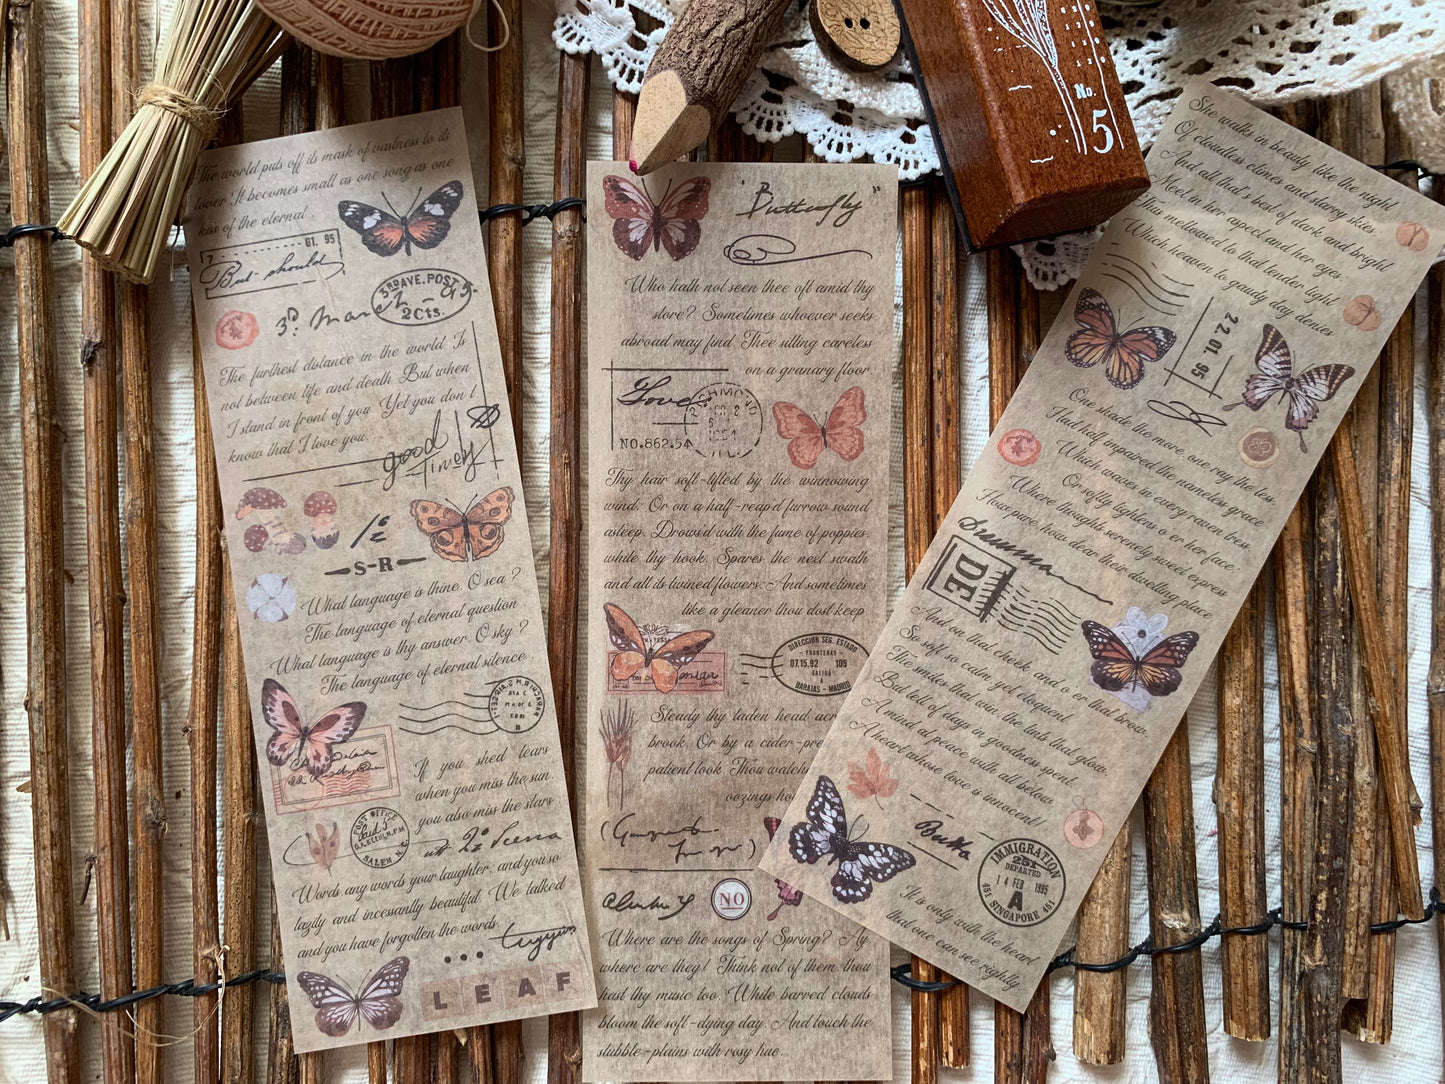 The world puts off its mask of vastness to its
lover. It becomes small as one song as one
kiss of the eternal.
01. 95
But should
3RD AVE. POST
2Cts.
The furthest distance in the world Is
not between life and death But when
I stand in front of you. Yet you don't
know that I love you.
good
Timely
S-R
What language is thine, O sea?
The language of eternal question
What language is thy answer, O sky?
The language of eternal silence.
If you shed tears
when you miss the sun,
you also miss the stars
POST OFFICE
SALEM N.C.
Words any words your laughter, and you so
lazily and incessantly beautiful. We talked
and you have forgotten the words.
LEAF
"Butterfly"
Who hath not seen thee oft amid thy
store? Sometimes whoever seeks
abroad may find Thee sitting careless
on a granary floor
Love
NO.862.54
Thy hair soft-lifted by the winnowing
wind; Or on a half-reap'd furrow sound
asleep, Drows'd with the fume of poppies,
while thy hook Spares the next swath
and all its twined flowers: And sometimes
like a gleaner thou dost keep
DIRECCION SEG. ESTADO
FRONTERAS
07.15.82 105
SALIDA
A
BARAJAS - MADRID
Steady thy laden head
brook. Or by a
patient look, Thou
oozings
NO
Where are the songs of Spring? Ay
where are they! Think not of them, thou
hast thy music too While barred clouds
bloom the soft-dying day, And touch the
stubble-plains with rosy hue.
No.
5
She walks in beauty, like the night
Of cloudless climes and starry skies:
And all that's best of dark and bright
Meet in her aspect and her eyes:
Thus mellowed to that tender light
Which heaven to gaudy day denies
22.01.95
One shade the more, one ray the less,
Had half impaired the nameless grace
Which waves in every raven tress,
Or softly lightens o er her face;
Where thoughts serenely sweet express
How pure, how dear their dwelling place
DE
And on that cheek, and o er that brow,
So soft, so calm, yet eloquent,
The smiles that win, the tints that glow,
But tell of days in goodness spent,
A mind at peace with all below,
A heart whose love is innocent!
IMMIGRATION
251
DEPARTED
14 FEB 1995
A
451 SINGAPORE 451
It is only with the heart
that one can see rightly